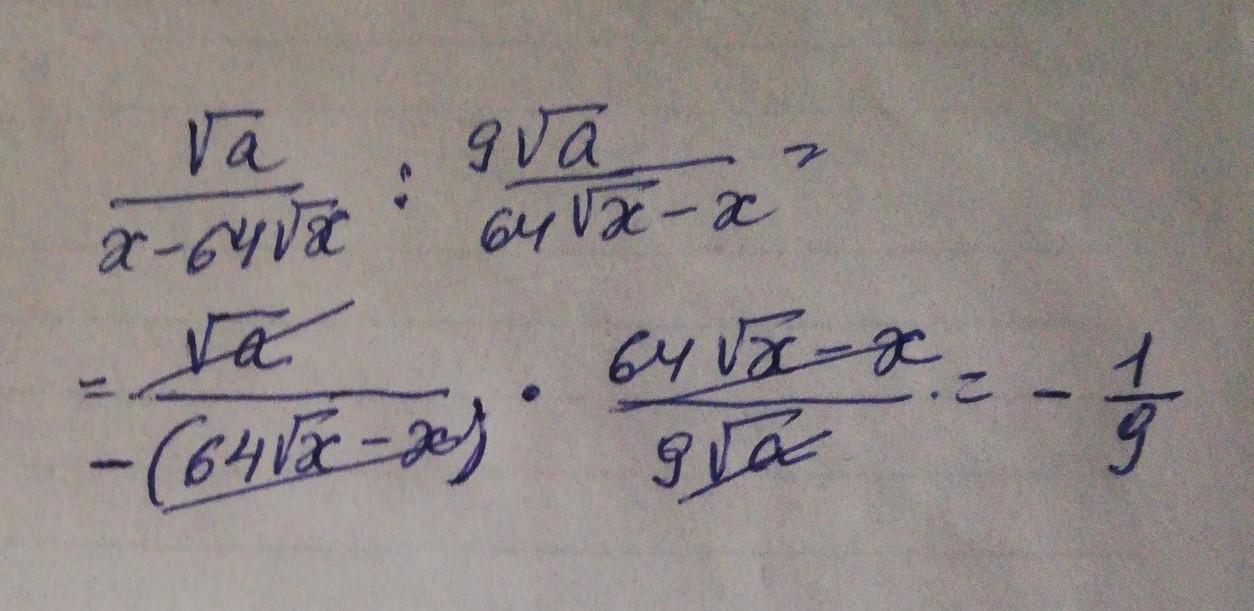 √a / (x - 64√x) : 9√a / (64√x - x) =
= √a / -(64√x - x) · (64√x - x) / 9√a = - 1/9